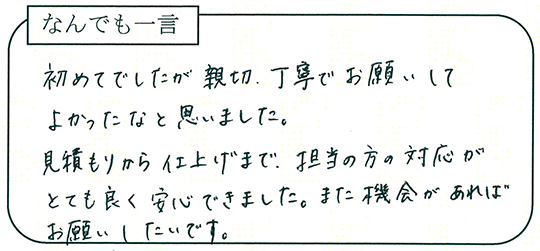 なんでも一言
初めてでしたが親切、丁寧でお願いして
よかったなと思いました。
見積もりから仕上げまで、担当の方の対応が
とても良く安心できました。また機会があれば
お願いしたいです。